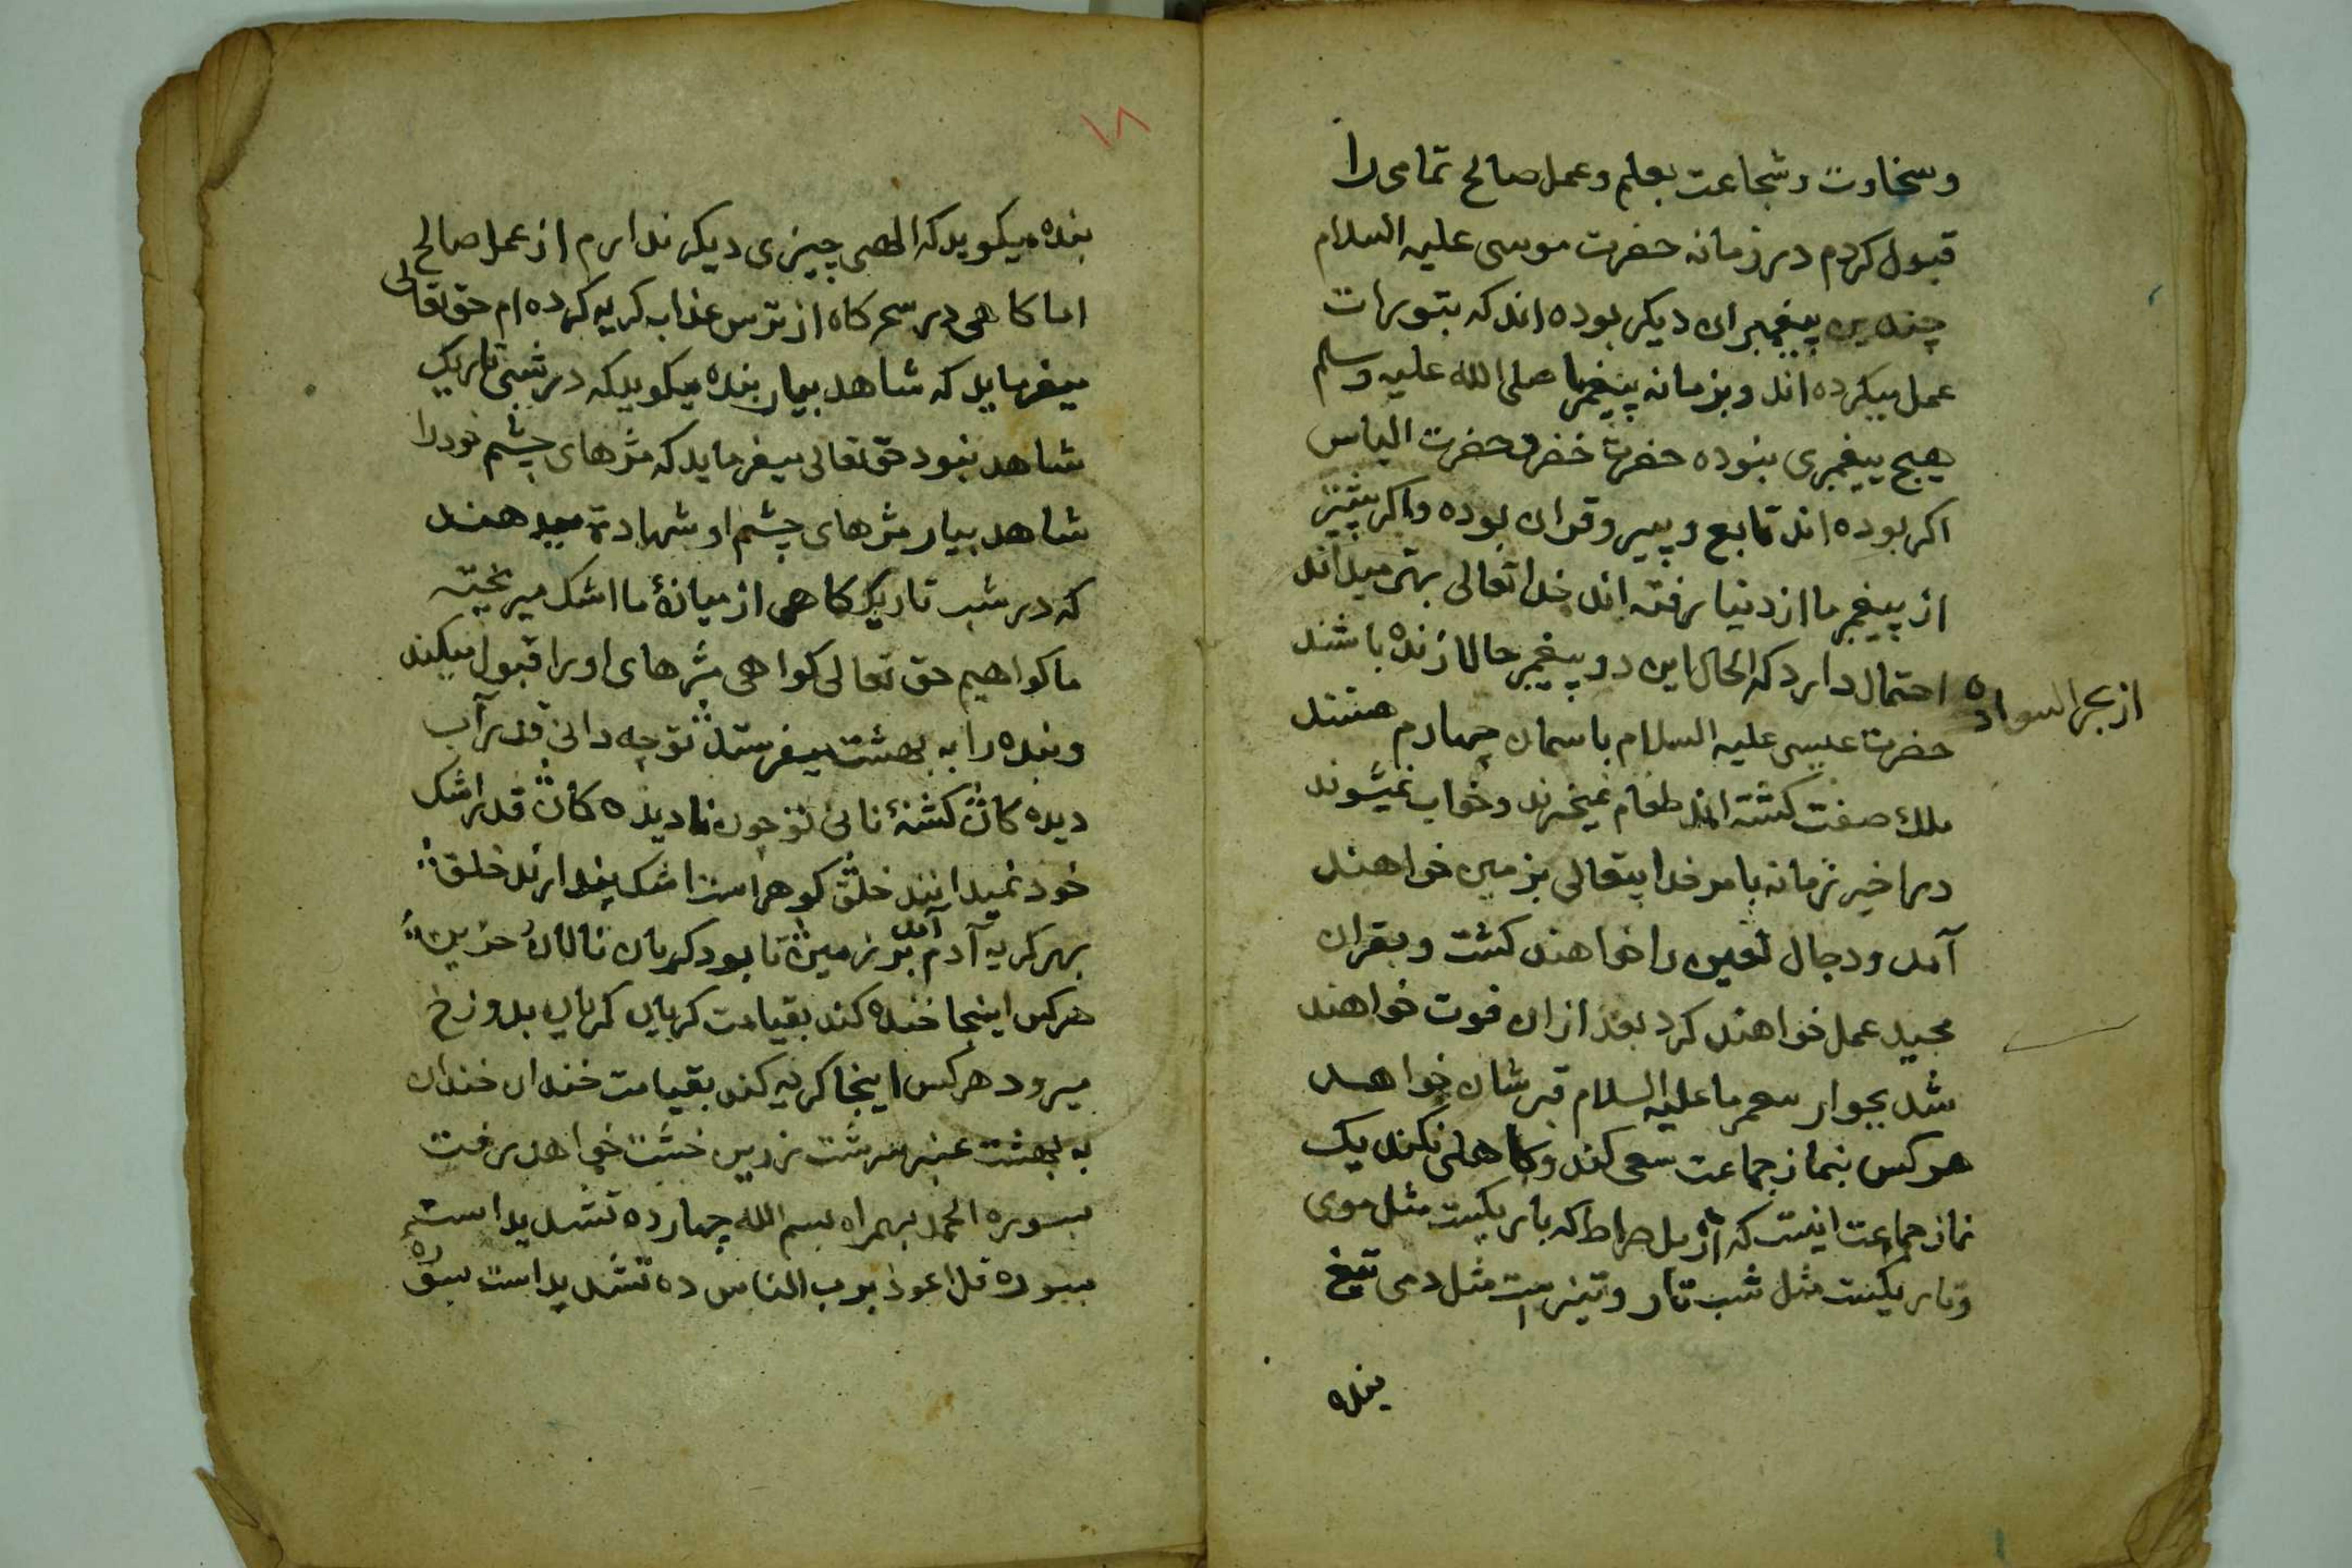 وسخاوت وشجاعت بعلم وعمل صالح تمامی را
قبول کردم در زمانه حضرت موسی علیه السلام
چندین پیغمبران دیکر بوده اند که بتورات
عمل میکرده اند و بزمانه پیغمبر ما صلی الله علیه وسلم
هیچ پیغمبری نبوده حضرت خضر و حضرت الیاس
اکر بوده اند تابع و پیرو قران بوده واکر پیشتر
از پیغمبر ما از دنیا رفته اند خدا تعالی بهتر میداند
احتمال دارد که الحال این دو پیغمبر حالا زنده باشند
از بحر السواد
حضرت عیسی علیه السلام باسمان چهارم هستند
ملک صفت کشته اند طعام نمیخرند وخواب نمیشوند
در اخیر زمانه بامر خدایتعالی بزمین خواهند
آمد ودجال لعین را خواهند کشت وبقران
مجید عمل خواهند کرد بعد ازان فوت خواهند
شد بجوار ما علیه السلام قبرشان خواهد
هر کس بنماز جماعت سعی کند وکاهلی نکند یک
نماز جماعت اینست که از پل صراط که باریکست مثل موی
وتاریکست مثل شب تار وتیز است مثل دمی تیغ
بنده
۱۸
بنده میکوید که الهی چیزی دیکر ندارم از عمل صالح
اما کاهی در سحرکاه از ترس عذاب کریه کرده ام حق تعالی
میفرماید که شاهد بیار بنده میکوید که در شبی تاریک
شاهد نبود حق تعالی میفرماید که مژهای چشم خود را
شاهد بیار مژهای چشم او شهادة میدهند
که در شب تاریک کاهی از میانهٔ ما اشک میریخته
ما کواهیم حق تعالی کواهی مژهای او را قبول میکند
وبنده را به بهشت میفرستد تو چه دانی قدر آب
دیده کان کشنهٔ نانی تو چون نادیده کان قدر اشک
خود نمیدانند خلق کوهر است اشک پندارند خلق
بهر کریه آدم آمد بر زمین تا بود کریان نالان حزین
هر کس اینجا خنده کند بقیامت کریان کریان بدوزخ
میرود هر کس اینجا کریه کند بقیامت خندان خندان
به بهشت عنبر سرشت زرین خشت خواهد رفت
بسوره الحمد بهمراه بسم الله چهارده تشدید است
بسوره قل اعوذ برب الناس ده تشدید است بسوره